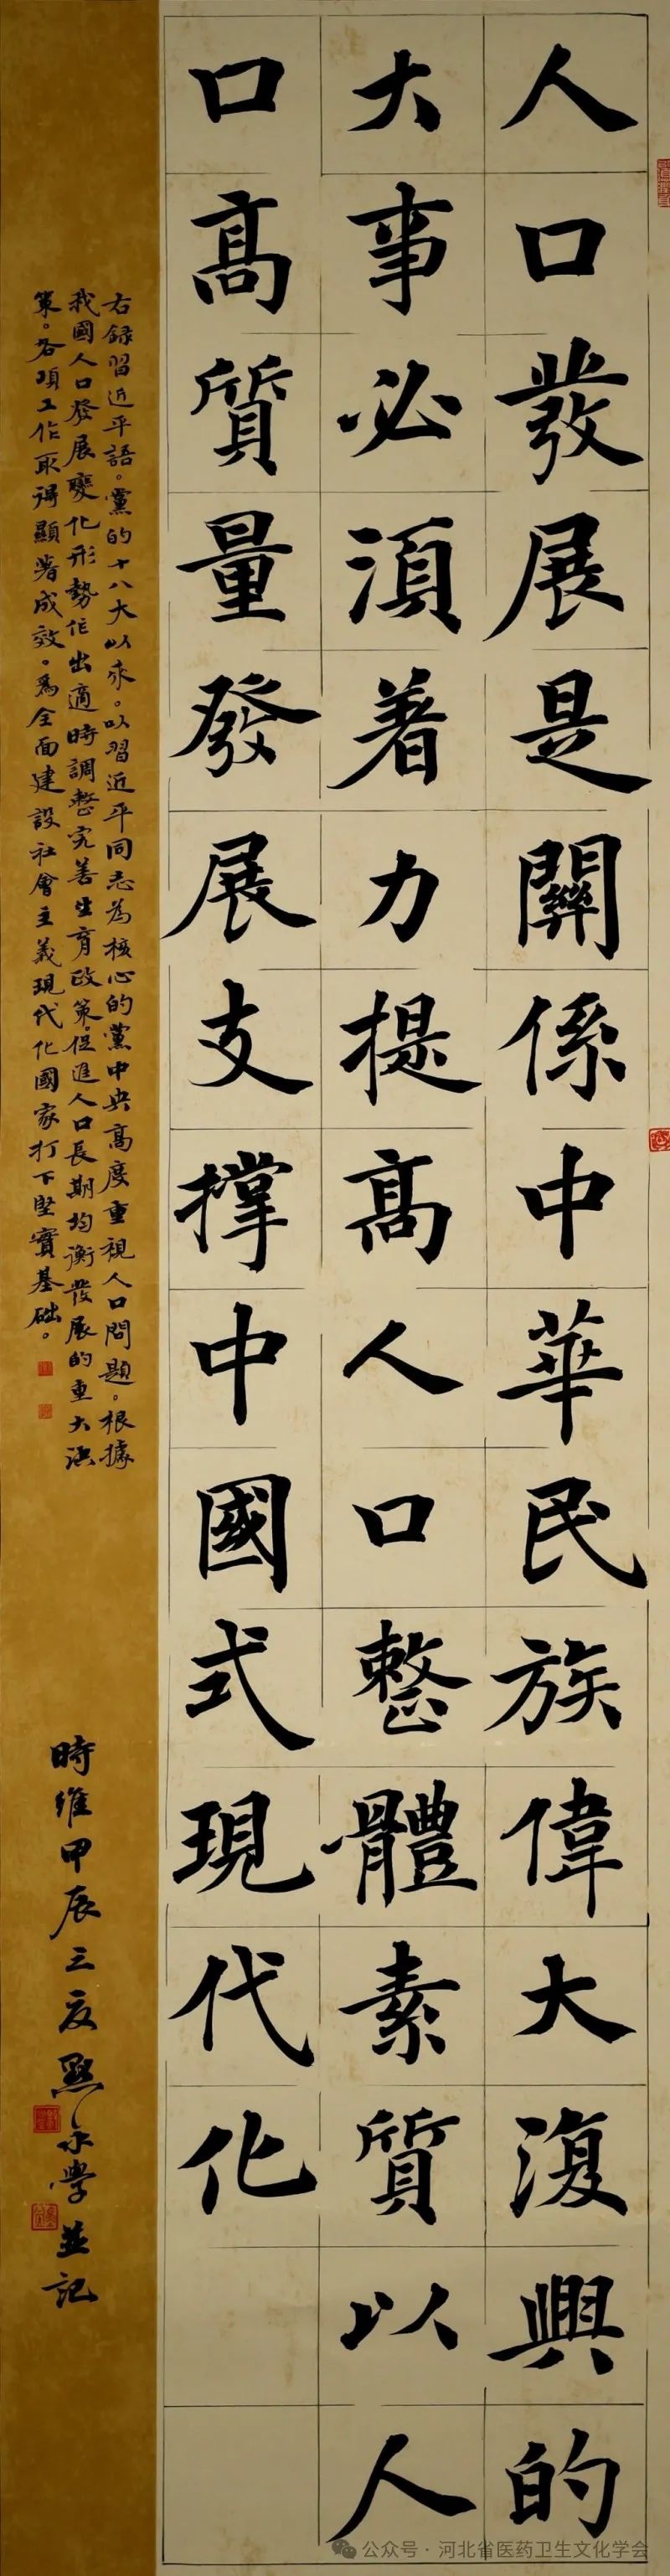 人口發展是關係中華民族偉大復興的
大事必須着力提高人口整體素質以人
口高質量發展支撑中國式現代化
右録習近平語。黨的十八大以來。以習近平同志为核心的黨中央高度重視人口問題。根據
我國人口發展變化形勢作出適時調整完善生育政策。促進人口長期均衡發展的重大決
策。各項工作取得顯著成效。爲全面建設社會主義現代化國家打下堅實基础。
時維甲辰三夏 永學並記
公众号·河北省医药卫生文化学会